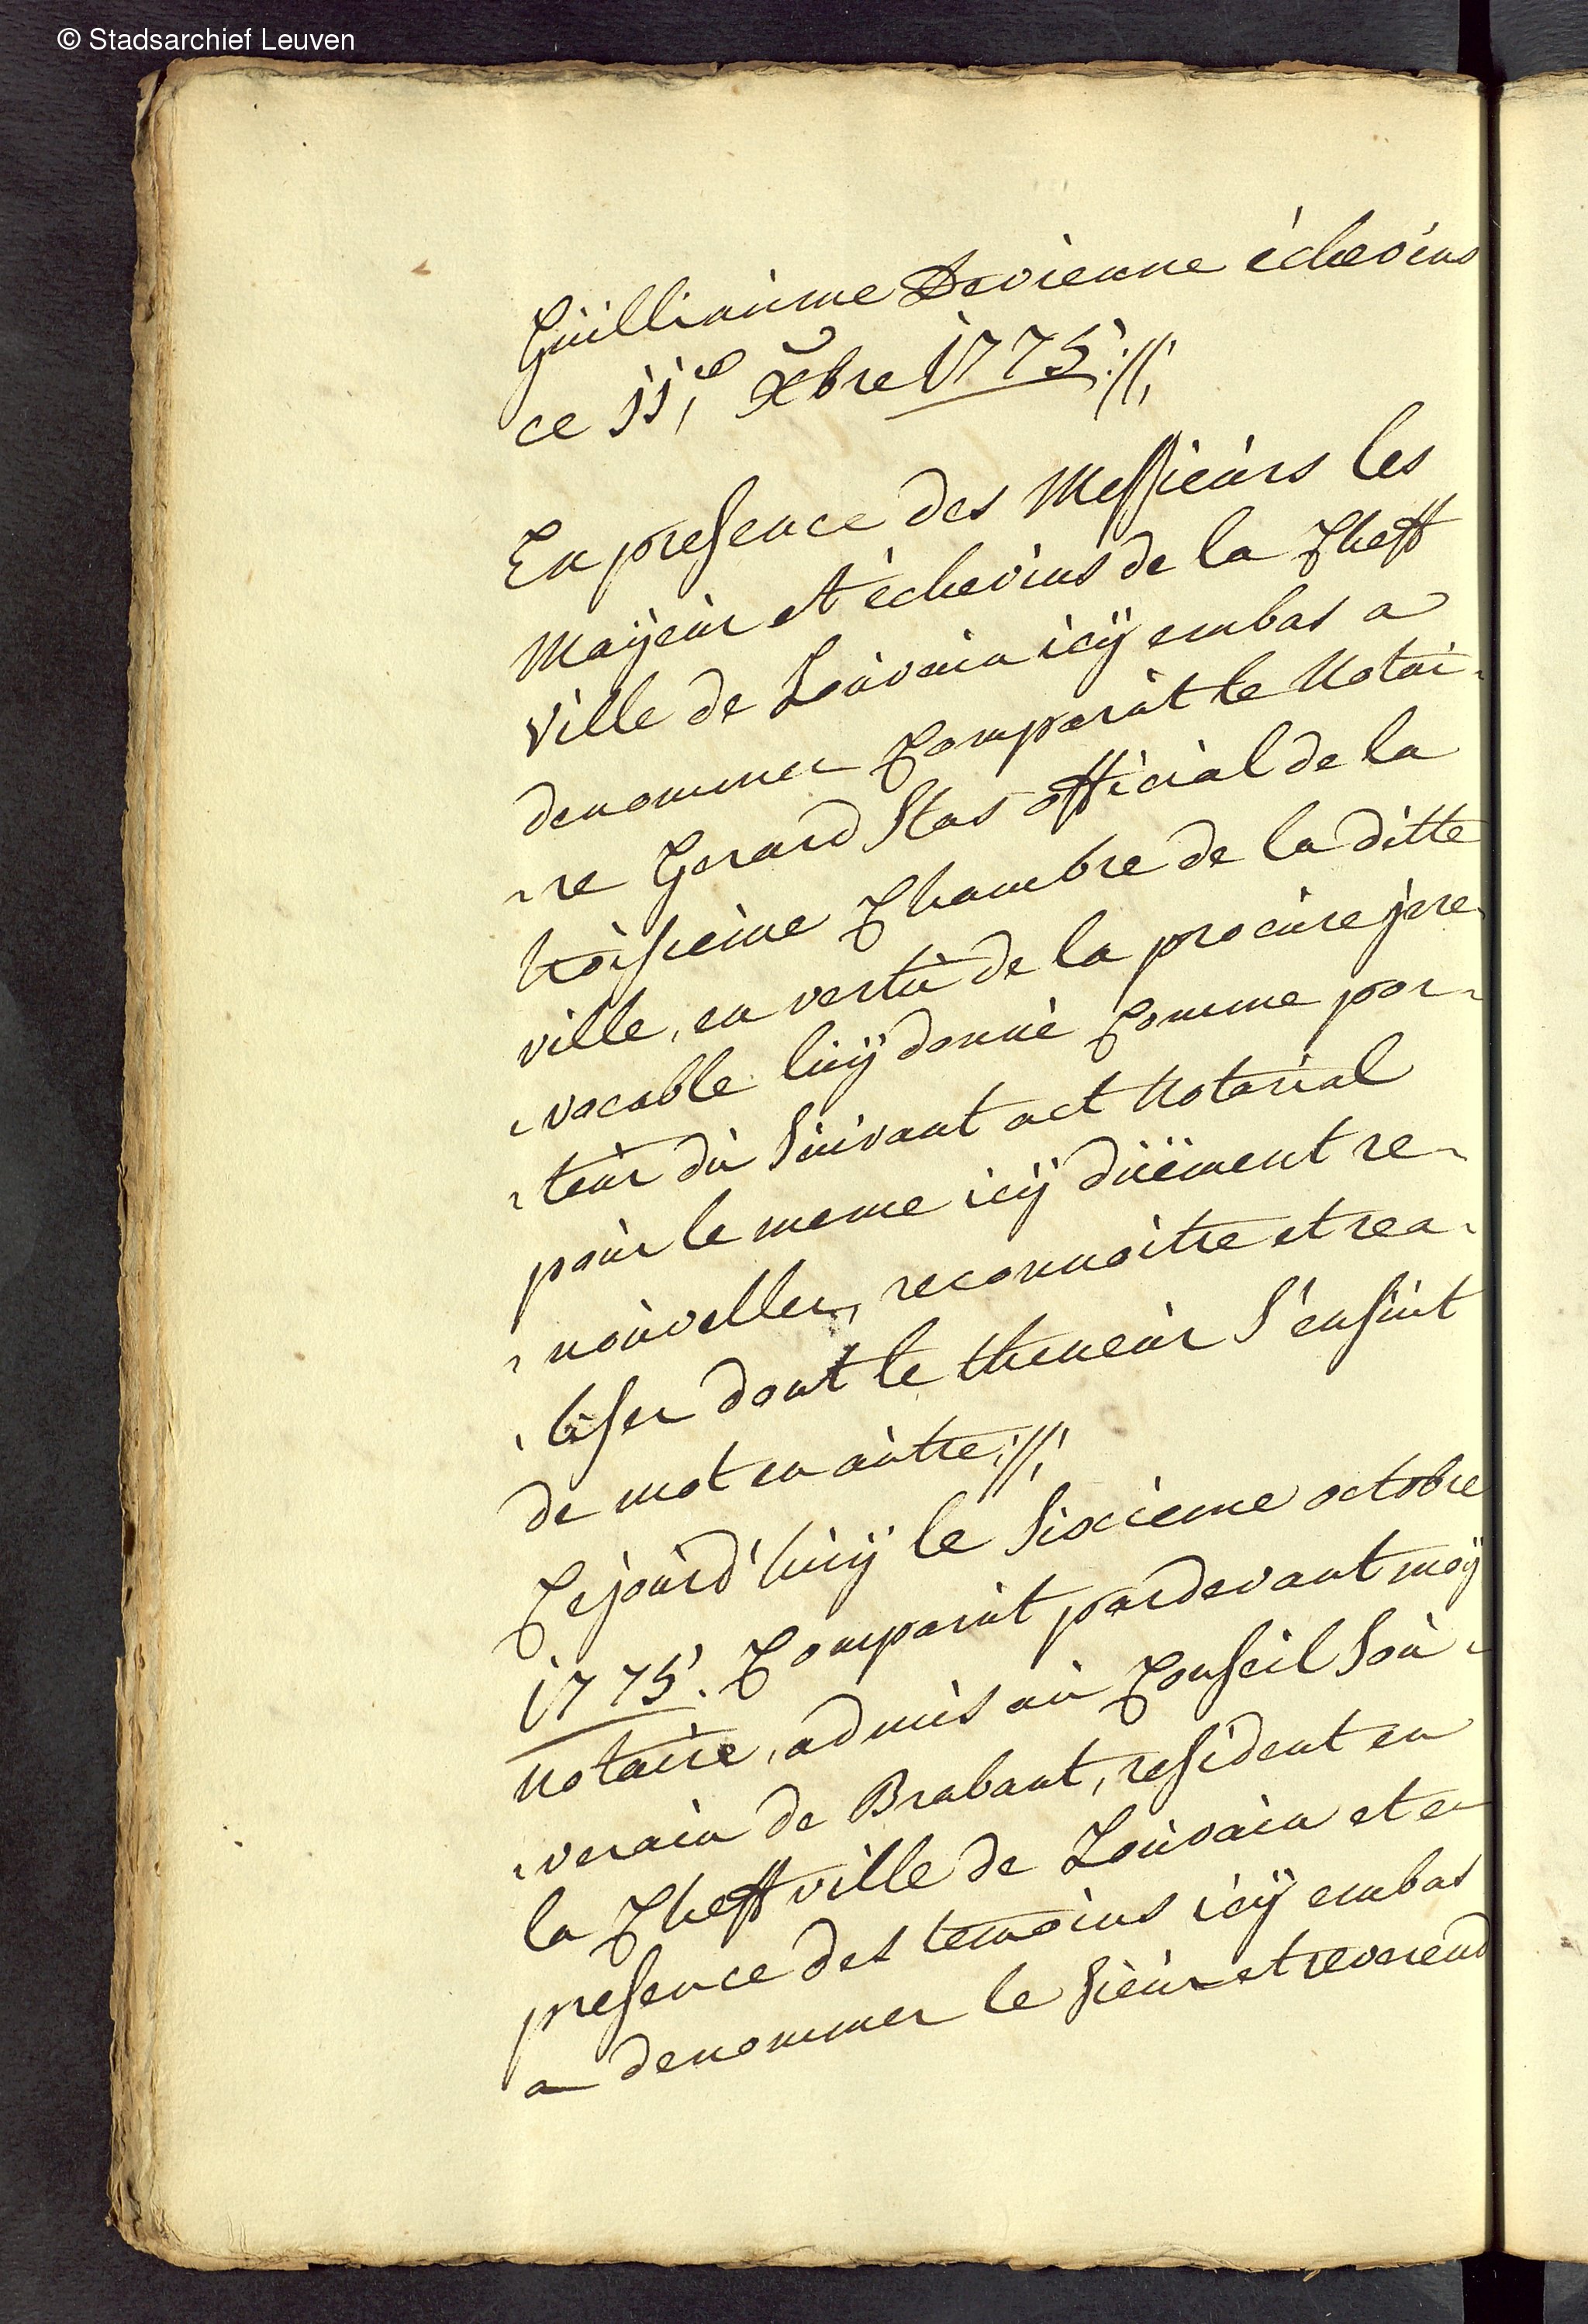 © Stadsarchief Leuven
Guilliaume Devienne échevins
ce 11,e Xbre 1775://:
En presence des Messieurs les
Mayeur et échevins de la Cheff
ville de Louvain icÿ embas a
denommer Comparut le Notai-
-re Gerard Stas official de la
troisieme Chambre de la ditte
ville, en vertu de la procure irre-
-vocable luÿ donné Comme por-
-teur du suivant act Notarial
pour le meme icÿ düement re-
-nouveller, reconnoitre et rea-
-liser dont le theneur s'ensuit
de mot en autre://:
Cejourd'huÿ le sixieme octobre
1775. Comparut pardevant moÿ
Notaire, admis au Conseil Sou-
-verain de Brabant, resident en
la Cheff ville de Louvain et en
presence des temoins icÿ embas
a denommer le sieur et reverend